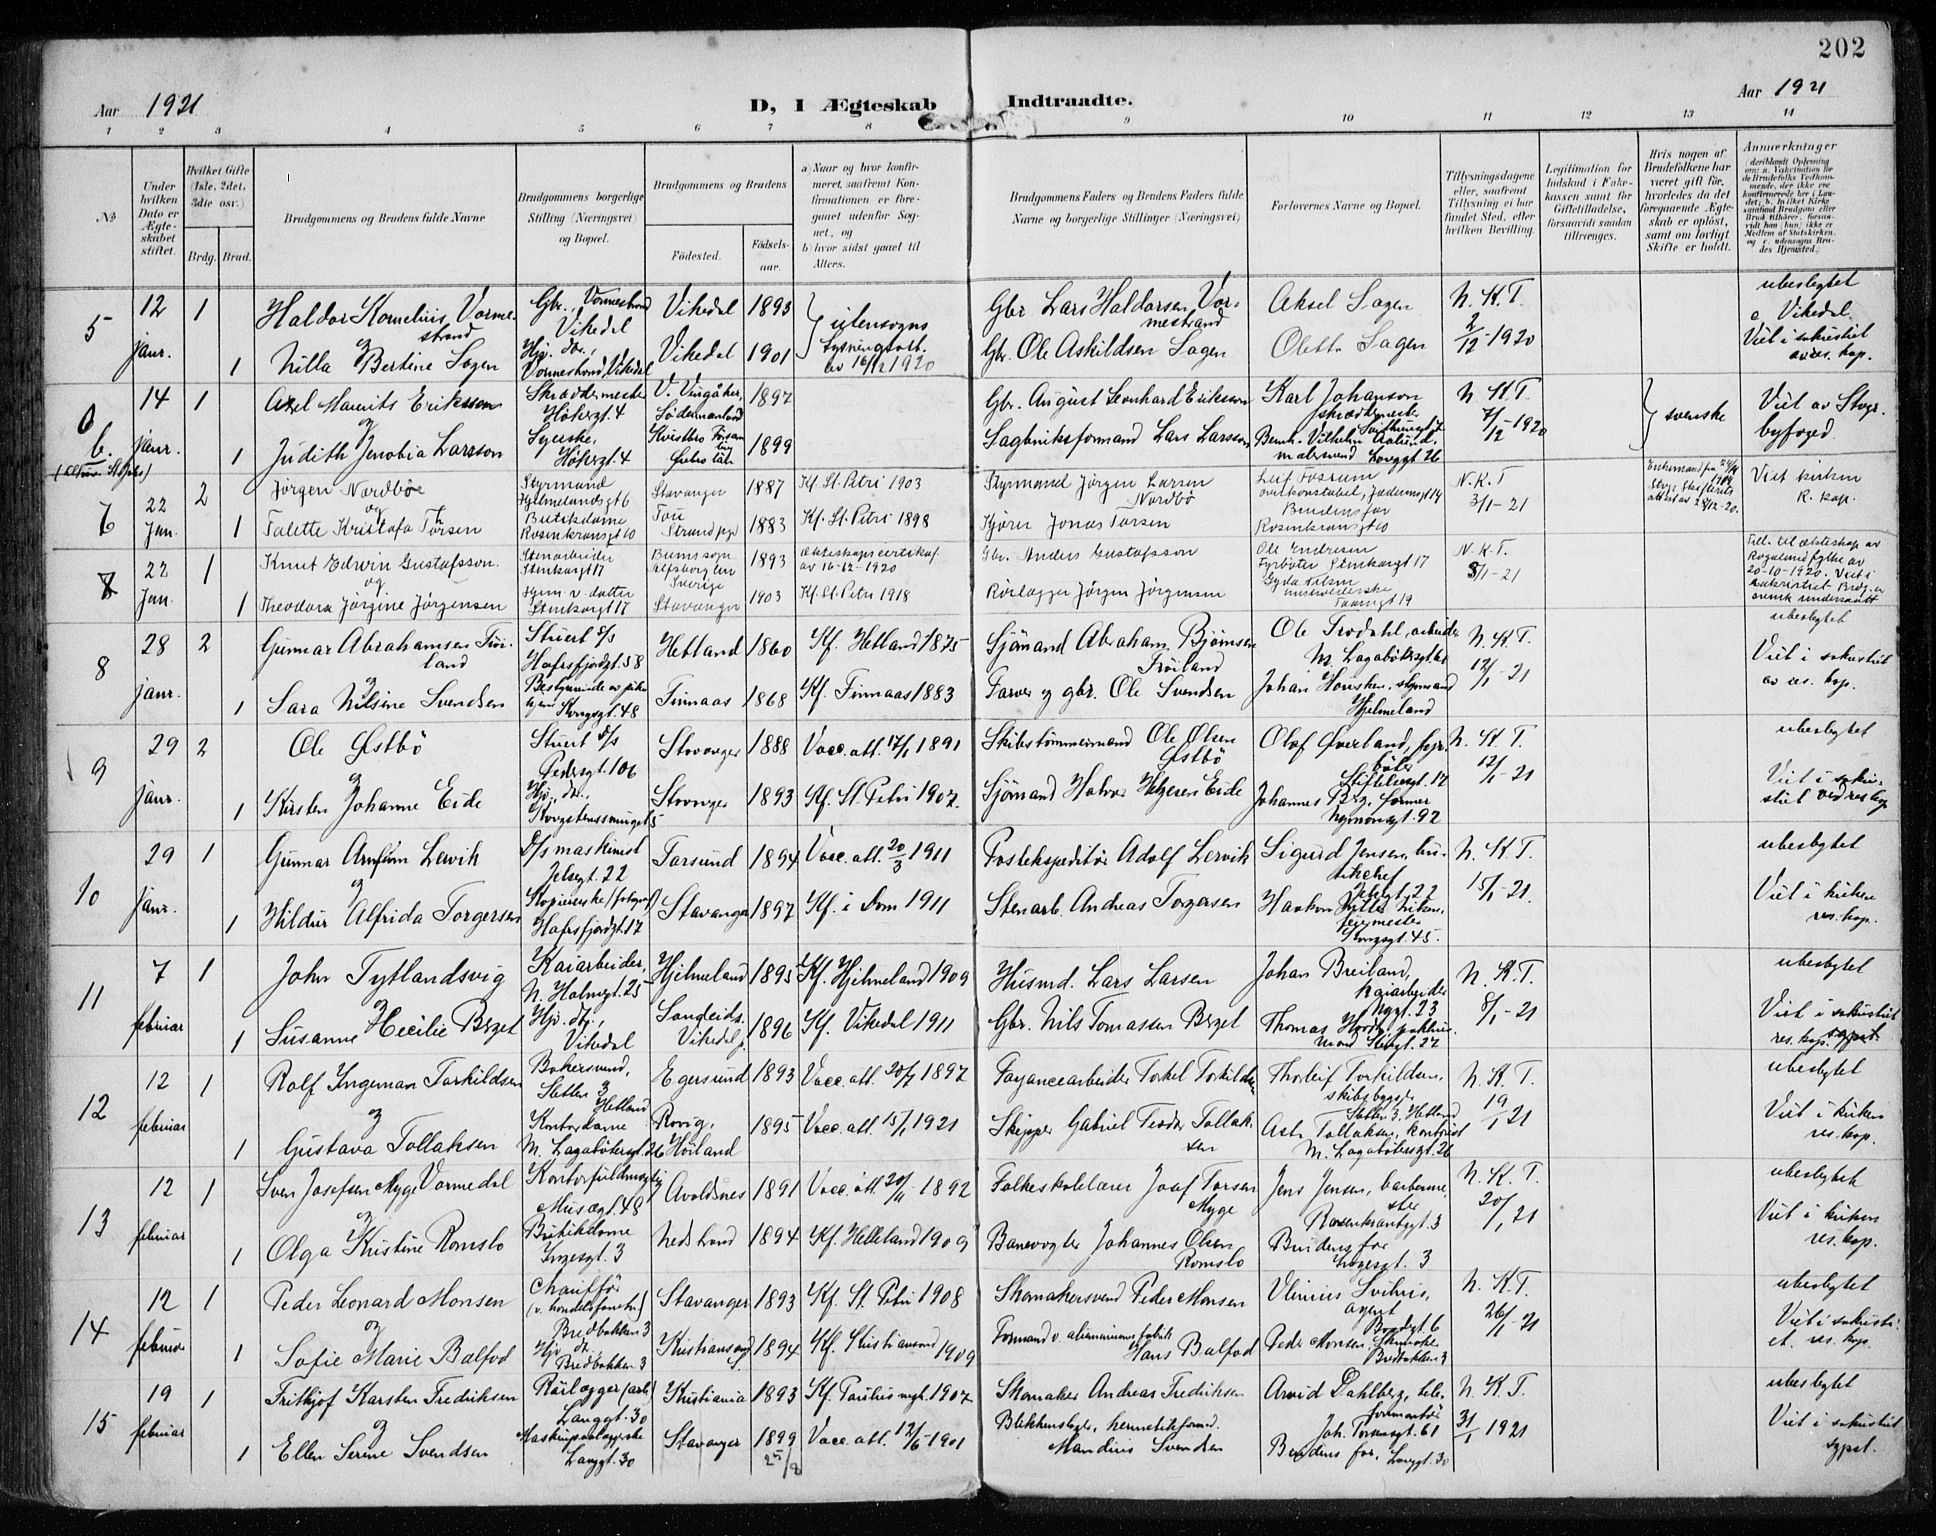 202
Aar 1921
D, I Ægteskab Indtraadte.
Aar 1921
1 2 3 4 5 6 7 8 9 10 11 12 13 14
No.
Under hvilken Dato er Ægteskabet stiftet.
Hvilket Gifte (1ste, 2det, 3die osv.)
Brdg. Brud.
Brudgommens og Brudens fulde Navne
Brudgommens borgerlige Stilling (Næringsvei) og Bopæl.
Brudgommens og Brudens
Fødested.
Fødsels-aar.
a) Naar og hvor konfirmeret, saafremt Konfirmationen er foregaaet udenfor Sognet, og
b) hvor sidst gaaet til Alters.
Brudgommens Faders og Brudens Faders fulde Navne og borgerlige Stillinger (Næringsvei)
Forlovernes Navne og Bopæl.
Tillysningsdagene eller, saafremt Tillysning ei har fundet Sted, efter hvilken Bevilling.
Legitimation for Indskud i Enkekassen samt for Giftetilladelse, forsaavidt saadan tiltrænges.
Hvis nogen af Brudefolkene har været gift før, hvorledes da det foregaaende Ægteskab er opløst, samt om lovligt Skifte er holdt.
Anmerkninger
5
12 janr. 1
Haldor Kornelius Vormestrand
Gbr., Vormestrand Vikedal
Vikedal 1893
utensogns lysningsatt. av 16/12 1920
Gbr Lars Haldorsen Vormestrand
Aksel Sagen
N. K. T.
2/12-1920
ubeslegtet
c Vikedal
og
1 Nilla Bertine Sagen
Hjv. dtr., Vormestrand, Vikedal
Vikedal 1901
Gbr. Ole Askildsen Sagen
Olette Sagen
Viet i sakristiet av res. kap.
6.
14 janr. 1
Axel Maurits Eriksson
Skræddermester Høkergt. 4
V. Vingåker, Södermanland 1897
Gbr. August Leonhard Eriksson
Karl Johanson skræddermester
N. K. T.
7/12-1920
svenske
Viet av Stvgr. byfoged
og
1 Judith Zenobia Larsson
Syerske, Høkergt. 4
1899
Sagbruksformand Lars Larsson
Bernh. Vilhelm Aalund, malersvend Langgt 26
7
22 Jan. 2
Jörgen Nordbøe
Styrmand Hjelmelandsgt 6
Stavanger 1887
Kf. St. Petri 1903
Styrmand Jörgen Larsen Nordbö
Leif Fossum overkonstabel, Jædernsgt 14
N. K. T
3/1-21
Viet kirken R. kap.
og
1 Talette Kristofa Thorsen
Butikdame Rosenkransgt 10
Tou Strand pgd 1883
Kf. St. Petri 1898
Kjører Jonas Torsen
Brudens far Rosenkransgt 10
8
22 Jan. 1
Knut Edvin Gustafsson
Stenarbeider Stenkargt 17
1893
av 16-12-1920
Gbr. Anders Gustafsson
Ole Endresen Fyrbøter Stenkargt 17
N. K. T.
8/1-21
og
1 Theodora Jørgine Jørgensen
Hjem v. datter Stenkargt 17
Stavanger 1903
Kf. St. Petri 1918
Rörlægger Jörgen Jörgensen
8
28 janr. 2
Gunnar Abrahamsen Tröiland
Stuert d/s Hafrsfjordgt. 58
Hetland 1860
Kf. Hetland 1875
Sjömand Abraham Björnsen Tröiland
Ole Trodahl, arbeider M. Lagabøtersgt.
N. K. T.
12/1-21
ubeslegtet
Viet i sakristiet av res. kap.
og
1 Sara Nilsine Svendsen
Kongsgt. 48
Finnaas 1868
Kf. Finnaas 1883
Farver og gbr. Ole Svendsen
Johan Haresken, styrmand Hjelmeland
9
29 janr. 2
Ole Østbö
Stuert d/s Pedersgt. 106
Stavanger 1888
Vacc. att. 17/1 1891
Skibstömmermand Ole Olsen Østbö
Olaf Øverland, fyrböter Stiftelsesgt. 17
N. K. T.
12/1-21
ubeslegtet
Viet i sakristiet ved res kap
og
1 Kirsten Johanne Eide
Hjv. dtr.,
Stavanger 1893
Kf. St. Petri 1907.
Sjömand Halvor Helgesen Eide
Johannes Berg, former Nymansgt. 92
10
29 janr. 1
Gunnar Arnfinn Lervik
D/s maskinist Jelsegt. 22
Farsund 1894
Vacc. att. 20/3 1911
Postekspeditör Adolf Lervik
Sigurd Jensen, Jelsegt. 22
N. K. T.
15/1-21.
ubeslegtet
Viet i kirken res. kap.
og
1 Hildur Alfrida Torgersen
Kopierske (fotograf) Hafrsfjordgt. 17
Stavanger 1897
Kf. i Dom 1911
Stenarb. Andreas Torgersen
Haakon Kongsgt. 45.
11
7 februar 1
John Tytlandsvig
Kaiarbeider, N. Holmegt. 25
Hjelmeland 1895
Kf. Hjelmeland 1909
Husmd. Lars Larsen
Johan Breiland, kaiarbeider Nygt. 23
N. K. T.
8/1-21
ubeslegtet
Viet i sakristiet res. kap.
1 Susanne Hecilie Berget
Hjv. dtr., Vikedal
Sandeid s. Vikedal p. 1896
Kf. Vikedal 1911
Gbr. Nils Tomassen Berget
Thomas
12
12 februar 1
Rolf Ingeman Torkildsen
Bakersvend, Sletten 3 Hetland
Egersund 1893
Vacc. att. 20/7 1897
Fayancearbeider Torkel Torkildsen
Thorleif Torkildsen, skibsbygger Sletten 3, Hetland
N. K. T.
19/1 21
ubeslegtet
Viet i kirken res. kap.
og
1 Gustava Tollaksen
Kontordame M. Lagabøtersgt. 26
Høiland 1895
Vacc. att. 15/1 1921
Skipper Gabriel Teodor Tollaksen
Tollaksen, kontorist M. Lagabötersgt. 26
13
12 februar 1
Sven Josefsen Myge Vormedal
Kontorfuldmægtig Musegt. 48
Avaldsnes 1891
Vacc. att. 20/11-1892
Folkeskolelærer Josef Torsen Myge
Jens Jensen, barbermester Rosenkrantzgt. 3
N. K. T.
20/1 21
ubeslegtet
Viet i kirken res. kap.
og
1 Olga Kristine Romslo
Butikdame Ingesgt. 3
Nedstrand 1894
Kf. Helleland 1909
Banevogter Johannes Olsen Romslo
Brudens far Ingesgt. 3
14
12 februar 1
Peder Leonard Monsen
Chauffør Bredbakken 3
Stavanger 1893
Kf. St. Petri 1908
Skomakersvend Peder Monsen
agent
N. K. T.
26/1-21
ubeslegtet
Viet i sakristiet. res. kap.
og
1 Sofie Marie Balfod
Hjv. dtr. Bredbakken 3
Kristiansand 1894
Kf. Kristiansand 1909
Formand v. aluminiumsfabrik Hans Balfod
Peder Monsen Skomaker Bredbakken 3
15
19 februar 1
Fritkjof Karsten Fredriksen
Rörlægger (arb.) Langgt. 30
Kristiania 1893
Kf. Paulus mgh. 1907
Skomaker Andreas Fredriksen
Arvid Dahlberg, Joh. Torsensgt. 61
N. K. T.
31/1 1921
ubeslegtet
Viet i sakristiet sgpst.
og
1 Ellen Serine Svendsen
Langgt. 30
Stavanger 1899 25/8
Vacc. att. 12/6-1901
Blikkenslager, hermetikformd. Mandius Svendsen
Brudens far, Langgt. 30